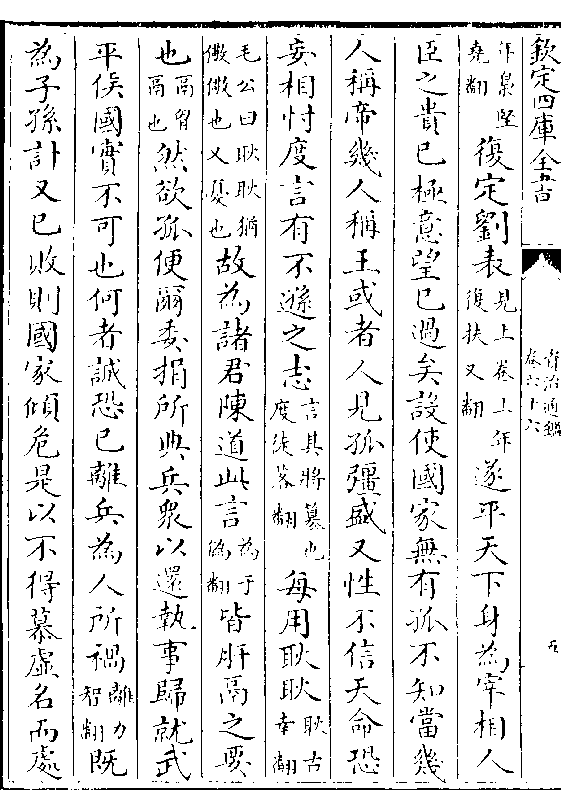 欽定四庫全書
資治通鑑
卷六十六
九
作梟堅
堯翻
復定劉表
見上卷上年
復扶又翻
遂平天下身為宰相人
臣之貴已極意望已過矣設使國家無有孤不知當幾
人稱帝幾人稱王或者人見孤彊盛又性不信天命恐
妄相忖度言有不遜之志
言其將簒也
度徒落翻
每用耿耿
耿古
幸翻
毛公曰耿耿猶
儆儆也又憂也
故為諸君陳道此言
為于
偽翻
皆肝鬲之要
也
鬲胷
鬲也
然欲孤便爾委捐所典兵衆以還執事歸就武
平侯國實不可也何者誠恐已離兵為人所禍
離力
智翻
既
為子孫計又已敗則國家傾危是以不得慕虛名而處